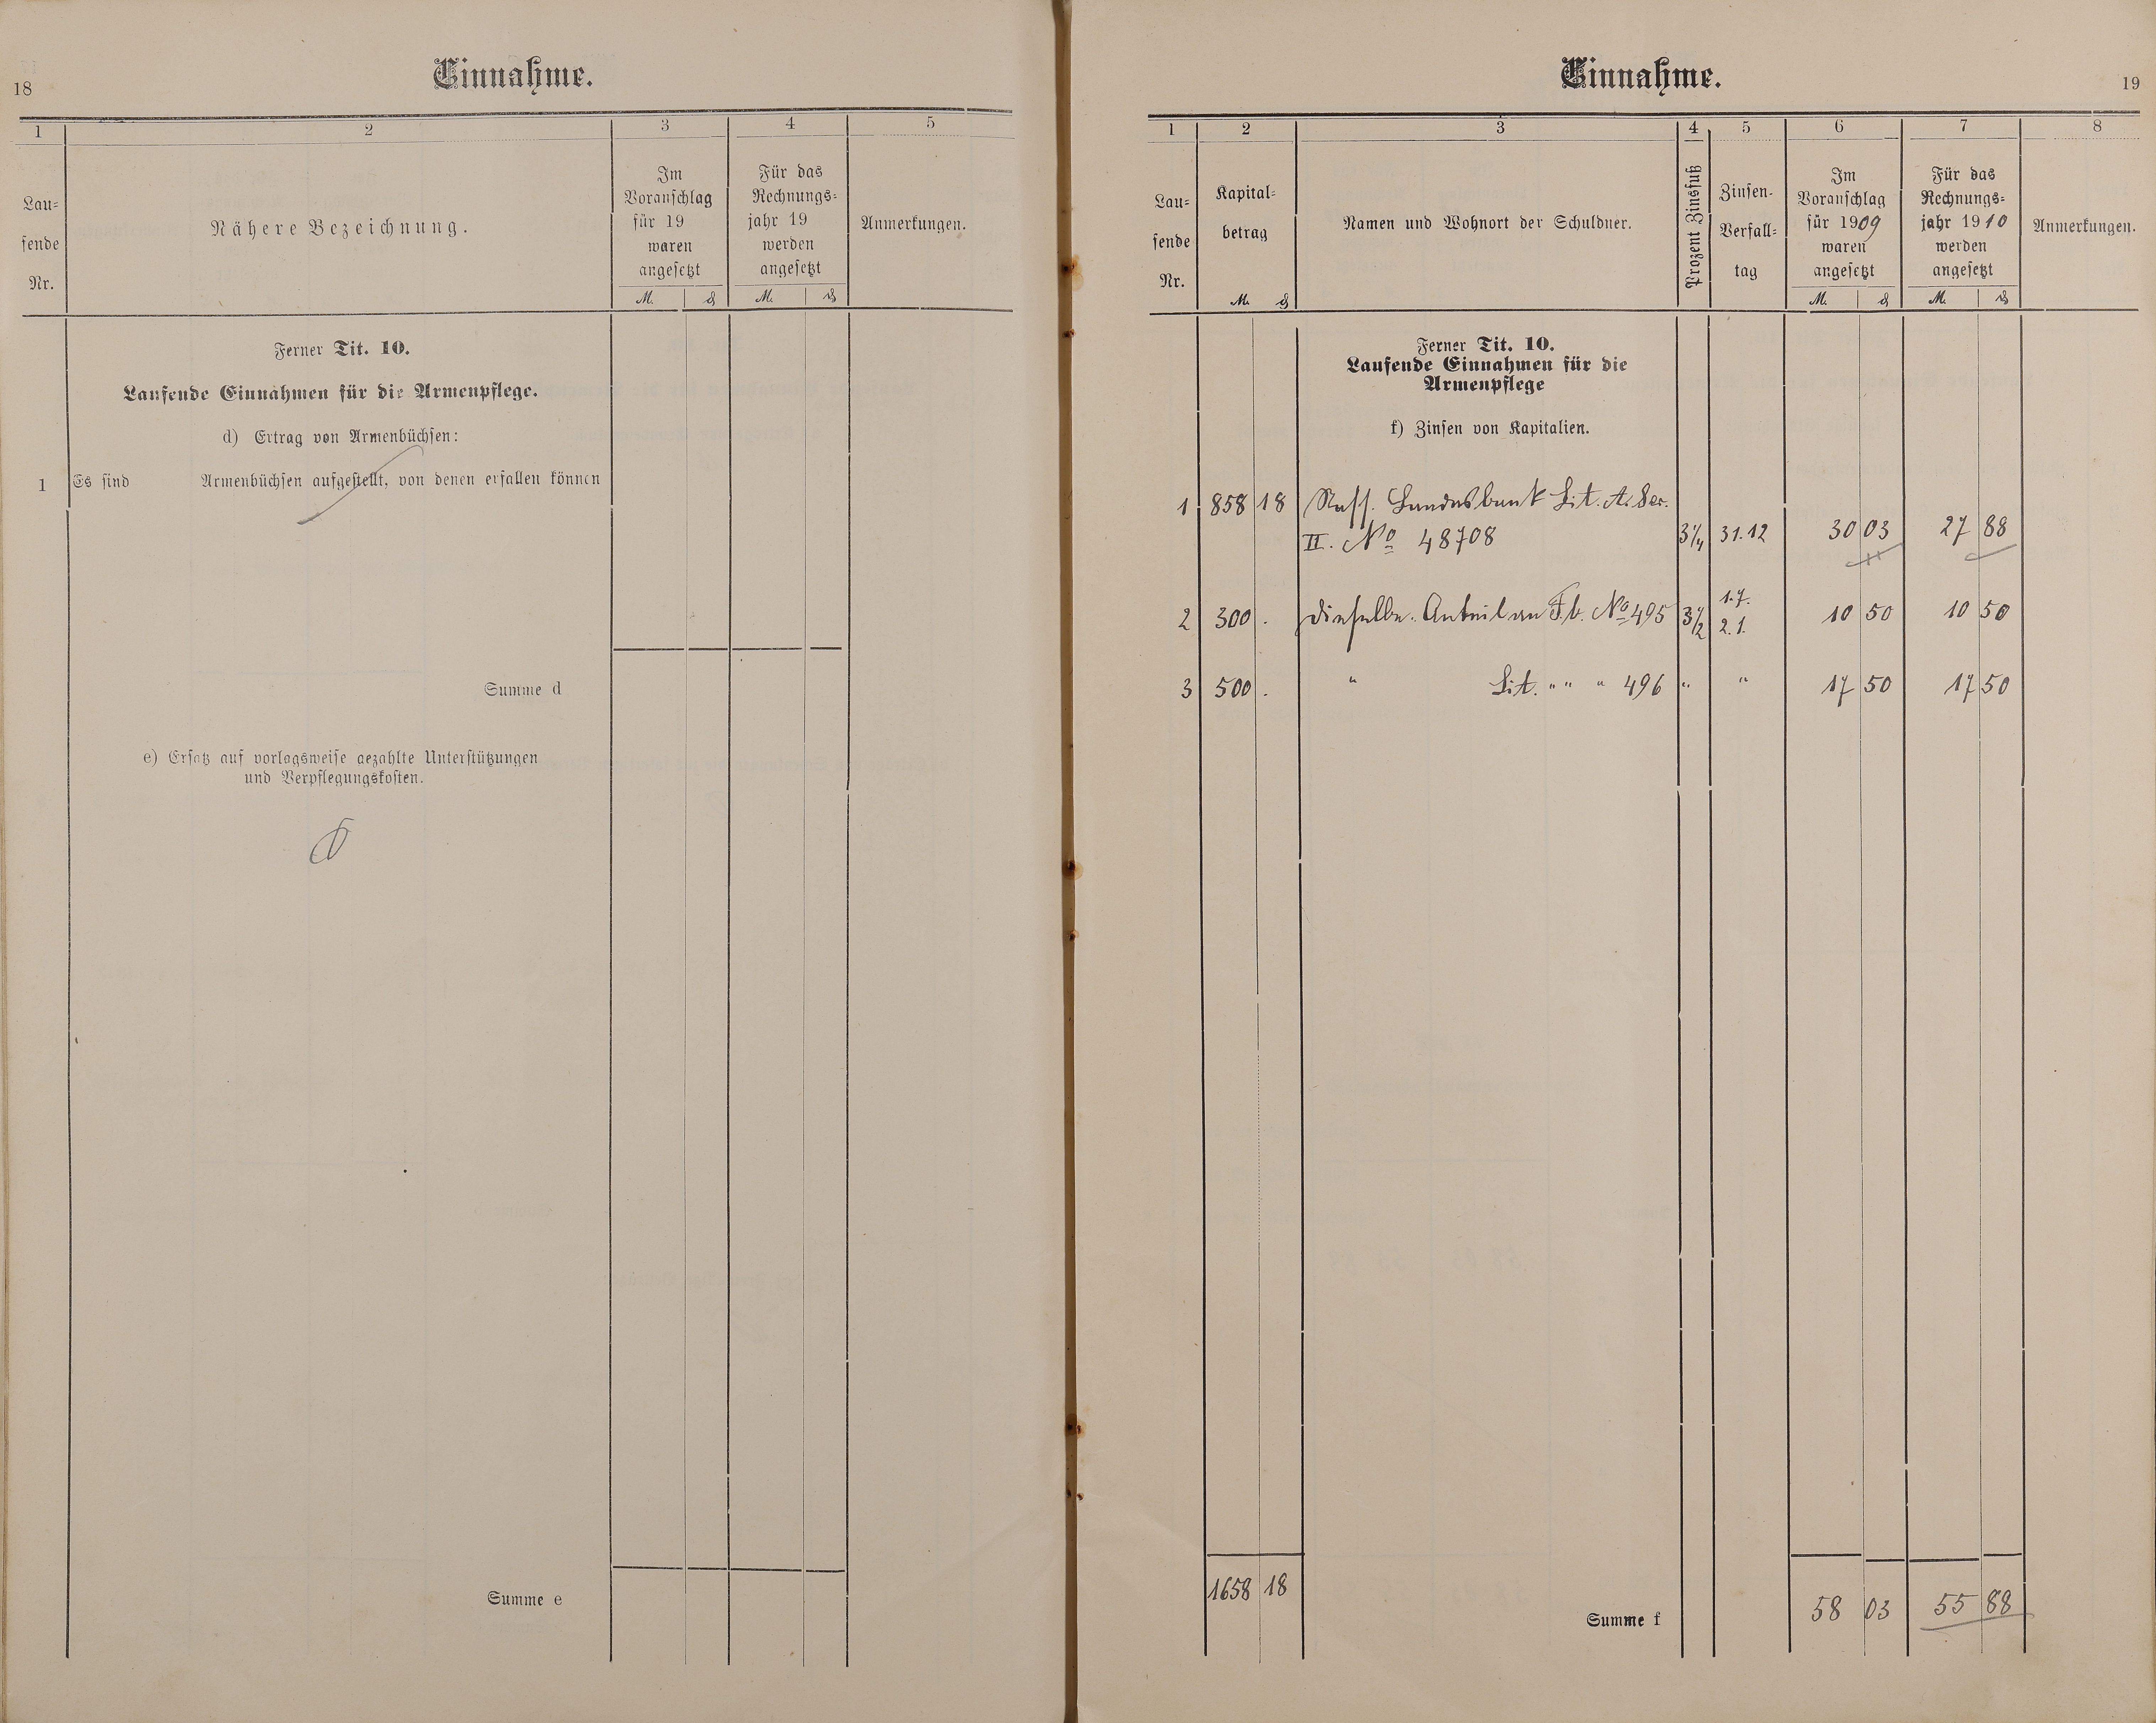 18
Einnahme.
1 2 3 4 5
Lau-
fende
Nr.
Nähere Bezeichnung.
Im
Voranschlag
für 19
waren
angesetzt
M. ₰
Für das
Rechnungs-
jahr 19
werden
angesetzt
M. ₰
Anmerkungen.
Ferner Tit. 10.
Laufende Einnahmen für die Armenpflege.
d) Ertrag von Armenbüchsen:
1 Es sind Armenbüchsen aufgestellt, von denen erfallen können
Summe d
e) Ersatz auf vorlagsweise gezahlte Unterstützungen
und Verpflegungskosten.
Summe e
Einnahme.
19
1 2 3 4 5 6 7 8
Lau-
fende
Nr.
Kapital-
betrag
M. ₰
Namen und Wohnort der Schuldner.
Prozent Zinsfuß
Zinsen-
Verfall-
tag
Im
Voranschlag
für 1909
waren
angesetzt
M. ₰
Für das
Rechnungs-
jahr 1910
werden
angesetzt
M. ₰
Anmerkungen.
Ferner Tit. 10.
Laufende Einnahmen für die
Armenpflege
f) Zinsen von Kapitalien.
1 858 18 Nass. Landesbank Lit. A. Ser.
II. No 48708 3 1/4 31.12 30 03 27 88
1.7.
2 300 . Dieselbe. Anteil an F.b. No 495 3 1/2 2.1. 10 50 10 50
3 500 . " Lit. " " " 496 " " 17 50 17 50
1658 18
Summe f 58 03 55 88